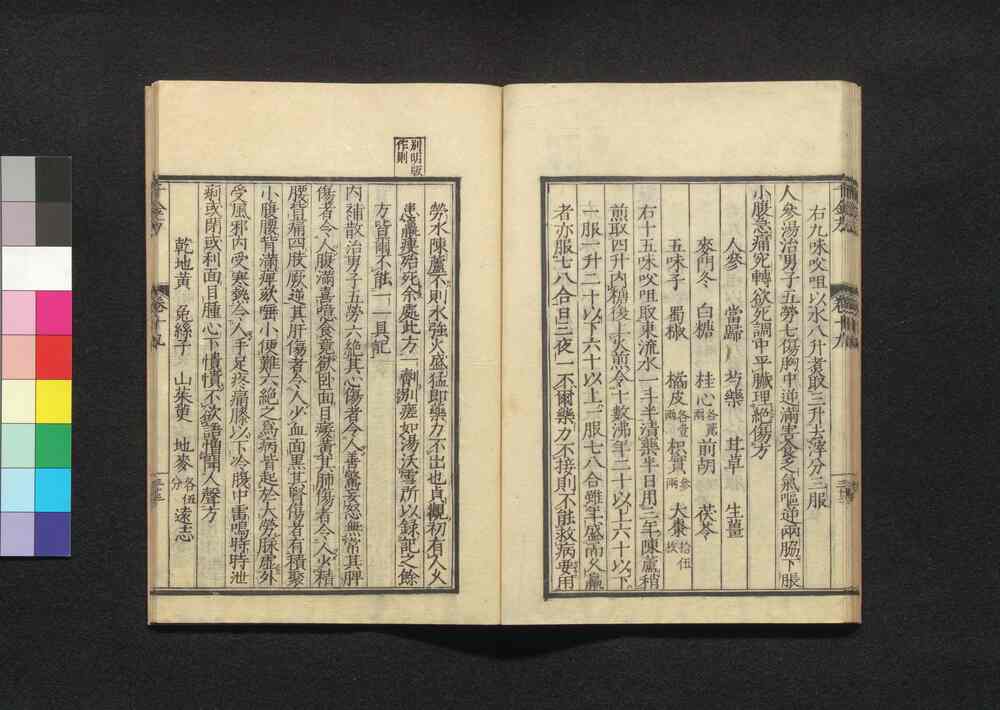 右九味㕮咀以水八升煮取三升去滓分三服
人參湯治男子五勞七傷胸中逆滿害食乏氣嘔逆兩脇下脹
小腹急痛宛轉欲死調中平臟理絕傷方
人參 當歸 芍藥 甘草 生薑
麥門冬 白糖 桂心各貳兩 前胡 茯苓
五味子 蜀椒 橘皮各壹兩 枳實參兩 大棗拾伍枚
右十五味㕮咀取東流水一斗半漬藥半日用三年陳蘆稍
煎取四升內糖後上火煎令十數沸年二十以上六十以下
一服一升二十以下六十以上一服七八合雖年盛而久羸
者亦服七八合日三夜一不爾藥力不接則不能救病要用
別明版作則
勞水陳蘆不則水強火盛猛即藥力不出也貞觀初有人久
患羸瘦殆死余處此方一劑別瘥如湯沃雪所以錄記之餘
方皆爾不能一一具記
內補散治男子五勞六絕其心傷者令人善驚妄怒無常其脾
傷者令人腹滿喜噫食竟欲臥面目痿黃其肺傷者令人少精
腰背痛四肢厥逆其肝傷者令人少血面黑其腎傷者有積聚
小腹腰背滿痺欬唾小便難六絕之為病皆起於大勞脈虛外
受風邪內受寒熱令人手足疼痛膝以下冷腹中雷鳴時時泄
痢或閉或利面目腫心下憒憒不欲語憎聞人聲方
乾地黃 兔絲子 山茱萸 地麥各伍分 遠志